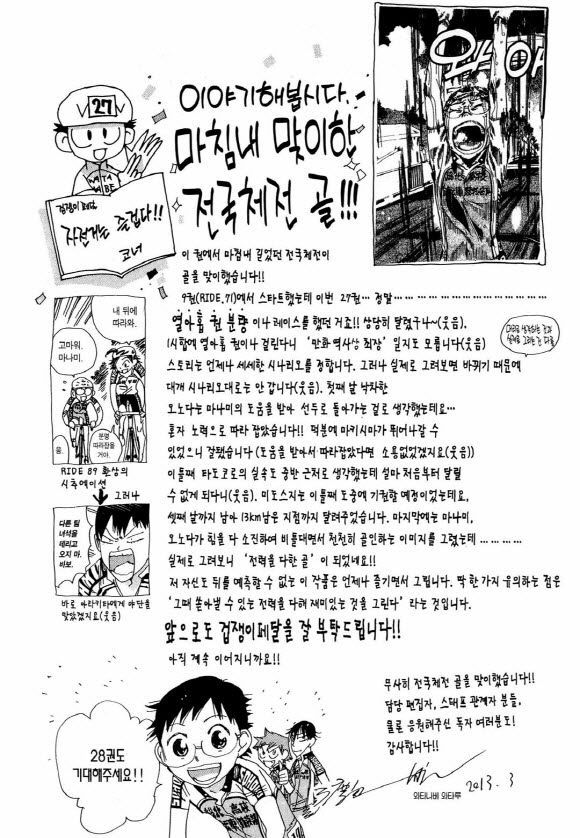 이야기해봅시다.
마침내 맞이한
전국체전 골!!!
27
겁쟁이 페달
자전거는 즐겁다!!
코너
이 권에서 마침내 길었던 전국체전이
골을 맞이했습니다!!
9권(RIDE.71)에서 스타트했는데 이번 27권… 정말…
열아홉 권 분량이나 레이스를 했던 거죠!! 상당히 달렸구나~(웃음).
1시합에 열아홉 권이나 걸린다니 '만화 역사상 최장' 일지도 모릅니다(웃음)
스토리는 언제나 세세한 시나리오를 정합니다. 그러나 실제로 그려보면 바뀌기 때문에
대개 시나리오대로는 안 갑니다(웃음). 첫째 날 낙차한
오노다는 마나미의 도움을 받아 선두로 돌아가는 걸로 생각했는데요…
혼자 노력으로 따라 잡았습니다!! 덕분에 마키시마가 뛰어나갈 수
있었으니 잘됐습니다(도움을 받아서 따라잡았다면 소용없었겠지요(웃음))
이틀째 타도코로의 실속도 중반 근처로 생각했는데 설마 처음부터 달릴
수 없게 되다니(웃음). 미도스지는 이틀째 도중에 기권할 예정이었는데요,
셋째 날까지 남아 13km남은 지점까지 달려주었습니다. 마지막에는 마나미,
오노다가 힘을 다 소진하여 비틀대면서 천천히 골인하는 이미지를 그렸는데…………
실제로 그려보니 '전력을 다한 골' 이 되었네요!!
저 자신도 뒤를 예측할 수 없는 이 작품은 언제나 즐기면서 그립니다. 딱 한 가지 유의하는 점은
'그때 쏟아낼 수 있는 전력을 다해 재미있는 것을 그린다' 라는 것입니다.
앞으로도 겁쟁이페달을 잘 부탁드립니다!!
아직 계속 이어지니까요!!
내 뒤에
따라와.
고마워.
마나미.
분명
따라잡을
거야.
응.
RIDE 89 환상의
시추에이션
그러나
다른 팀
녀석을
데리고
오지 마.
바보.
바로 아라키타에게 야단을
맞았겠지요(웃음)
무사히 전국체전 골을 맞이했습니다!!
담당 편집자, 스태프 관계자 분들,
물론 응원해주신 독자 여러분도!
감사합니다!!
2013. 3
와타나베 와타루
28권도
기대해주세요!!